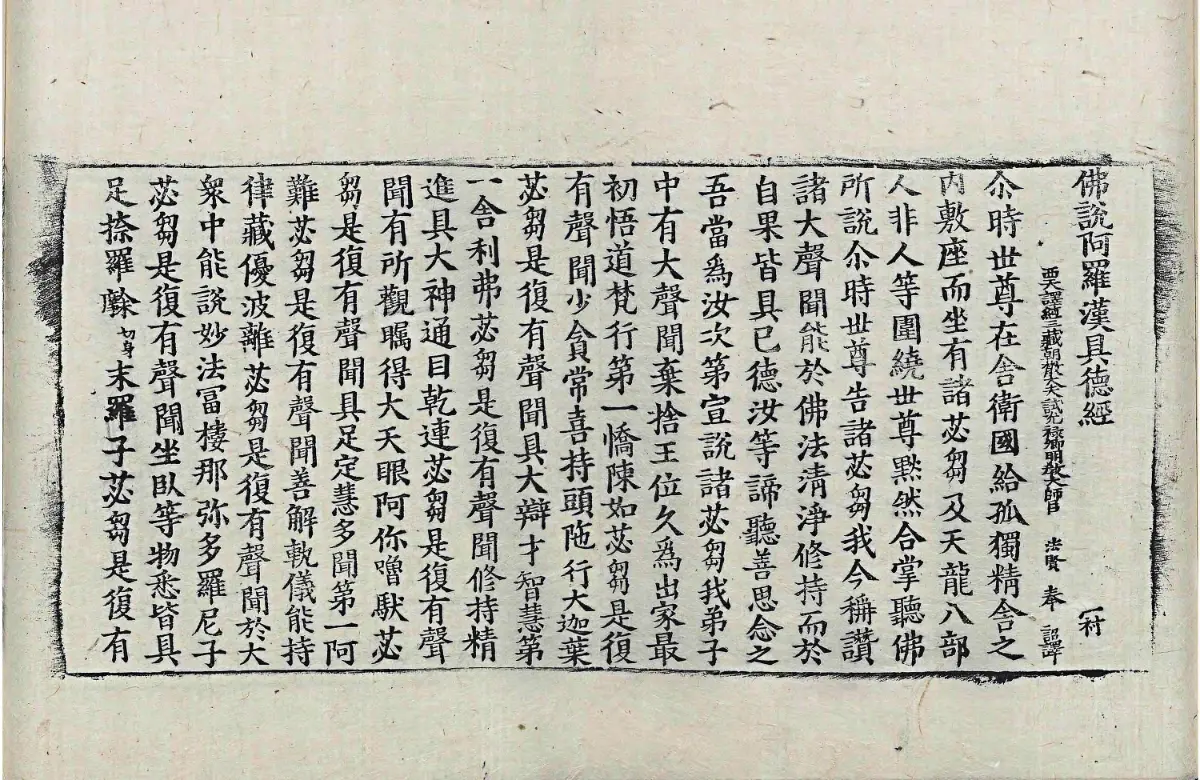 佛說阿羅漢具德經
西天譯經三藏朝散大夫試光祿卿明教大師臣 法賢 奉 詔譯
村
尒時世尊在舍衛國給孤獨精舍之
內敷座而坐有諸苾芻及天龍八部
人非人等圍繞世尊黙然合掌聽佛
所說尒時世尊告諸苾芻我今稱讚
諸大聲聞能於佛法清淨修持而於
自果皆具已德汝等諦聽善思念之
吾當爲汝次第宣說諸苾芻我弟子
中有大聲聞棄捨王位久爲出家最
初悟道梵行第一憍陳如苾芻是復
有聲聞少貪常喜持頭陁行大迦葉
苾芻是復有聲聞具大辯才智慧第
一舍利弗苾芻是復有聲聞修持精
進具大神通目乾連苾芻是復有聲
聞有所觀矚得大天眼阿你嚕馱苾
芻是復有聲聞具足定慧多聞第一阿
難苾芻是復有聲聞善解軌儀能持
律藏優波離苾芻是復有聲聞於大
衆中能說妙法冨樓那弥多羅尼子
苾芻是復有聲聞坐臥等物悉皆具
足捺羅 切身 末羅子苾芻是復有